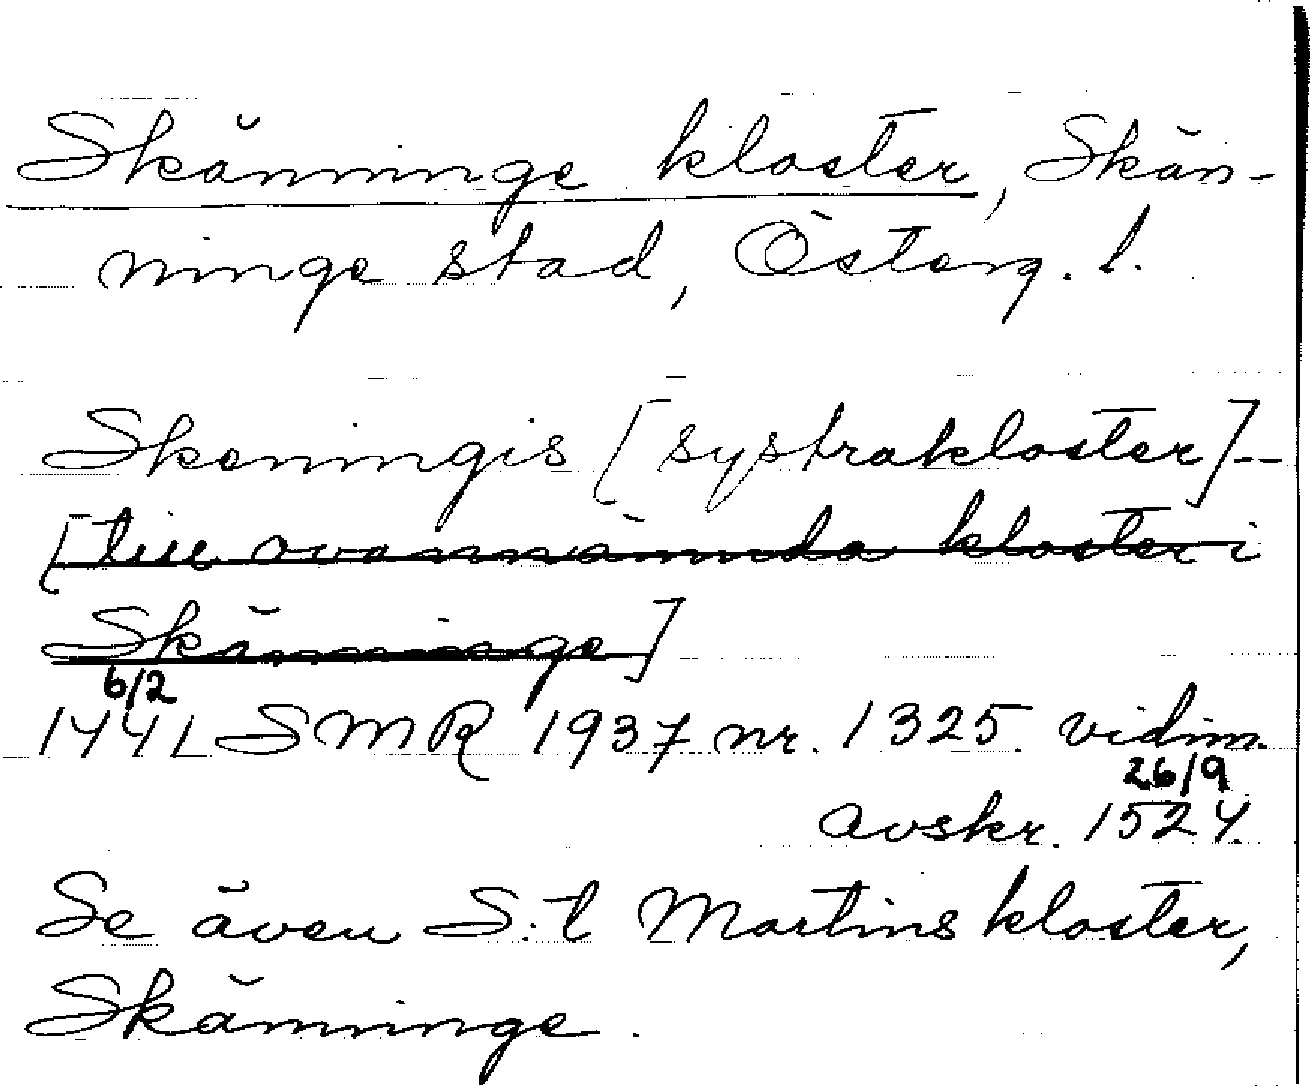 Skänninge kloster, Skän-
ninge stad, Österg. l.
Skeningis [systrakloster]--
[till ovannämnda kloster i
Skänninge]
6/2
1441 SMR 1937 nr. 1325 vidim.
26/9
avskr. 1524.
Se även S:t Martins kloster,
Skänninge.